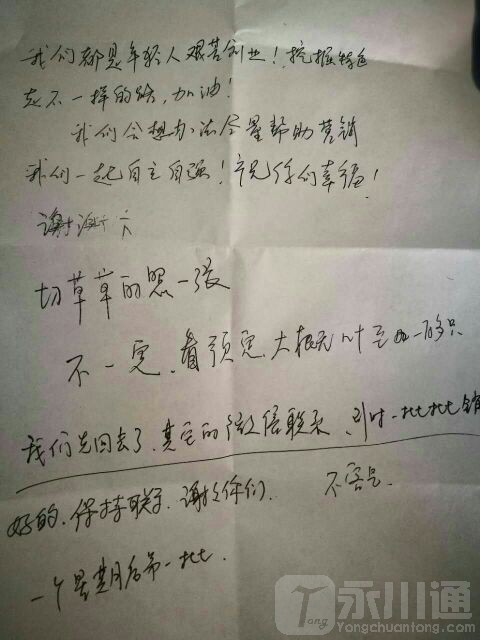 我们都是年轻人艰苦创业！挖掘特色
走不一样的路,加油！
我们会想办法尽量帮助营销
我们一起自主自强！祝你们幸福！
谢谢
切草草的照一张
不一定.看预定.大概五
我们先回去了.其它的微信联系.到时一批批销
好的.保持联系.谢谢你们.
不客气.
一个星期后第一批.
永川通
Tong
Yongchuantong.com